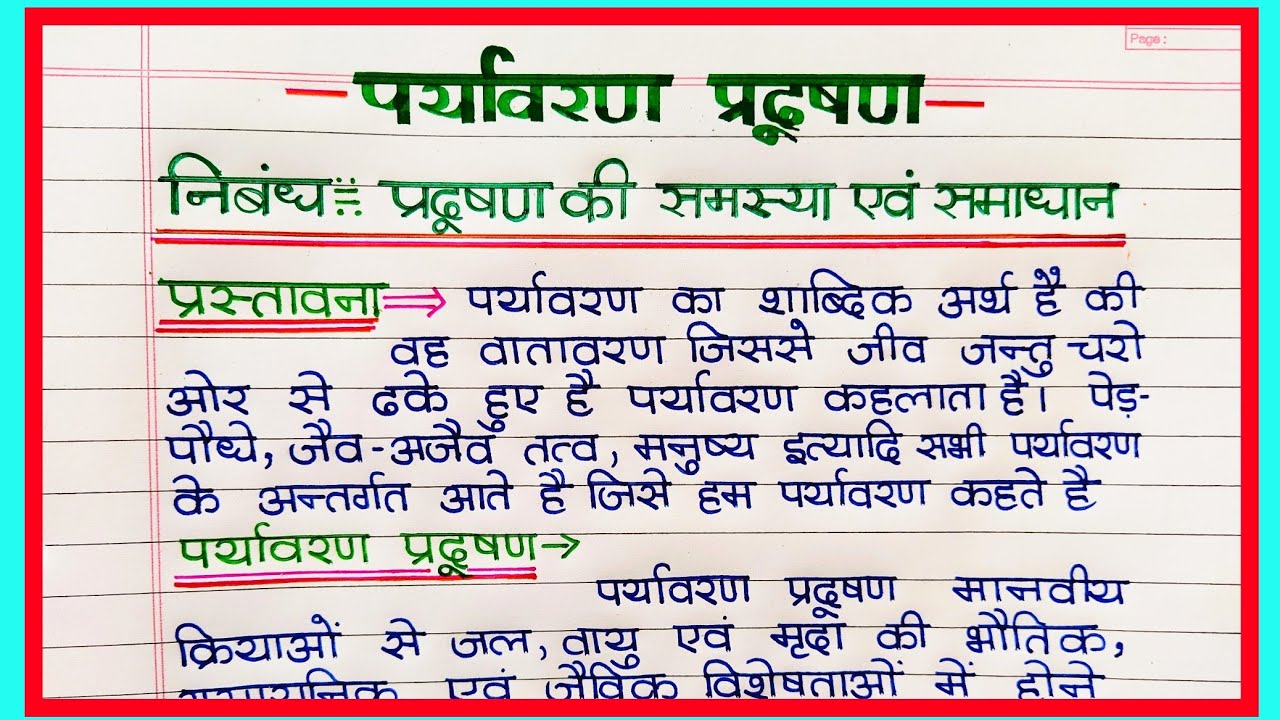 Page:
पर्यावरण प्रदूषण
निबंध:- प्रदूषण की समस्या एवं समाधान
प्रस्तावना⇒ पर्यावरण का शाब्दिक अर्थ है की
वह वातावरण जिससे जीव जन्तु चरो
ओर से ढके हुए है पर्यावरण कहलाता है। पेड़-
पौधे, जैव-अजैव तत्व, मनुष्य इत्यादि सभी पर्यावरण
के अन्तर्गत आते है जिसे हम पर्यावरण कहते है
पर्यावरण प्रदूषण→
पर्यावरण प्रदूषण मानवीय
क्रियाओं से जल, वायु एवं मृदा की भौतिक,
एवं जैविक विशेषताओं में होने